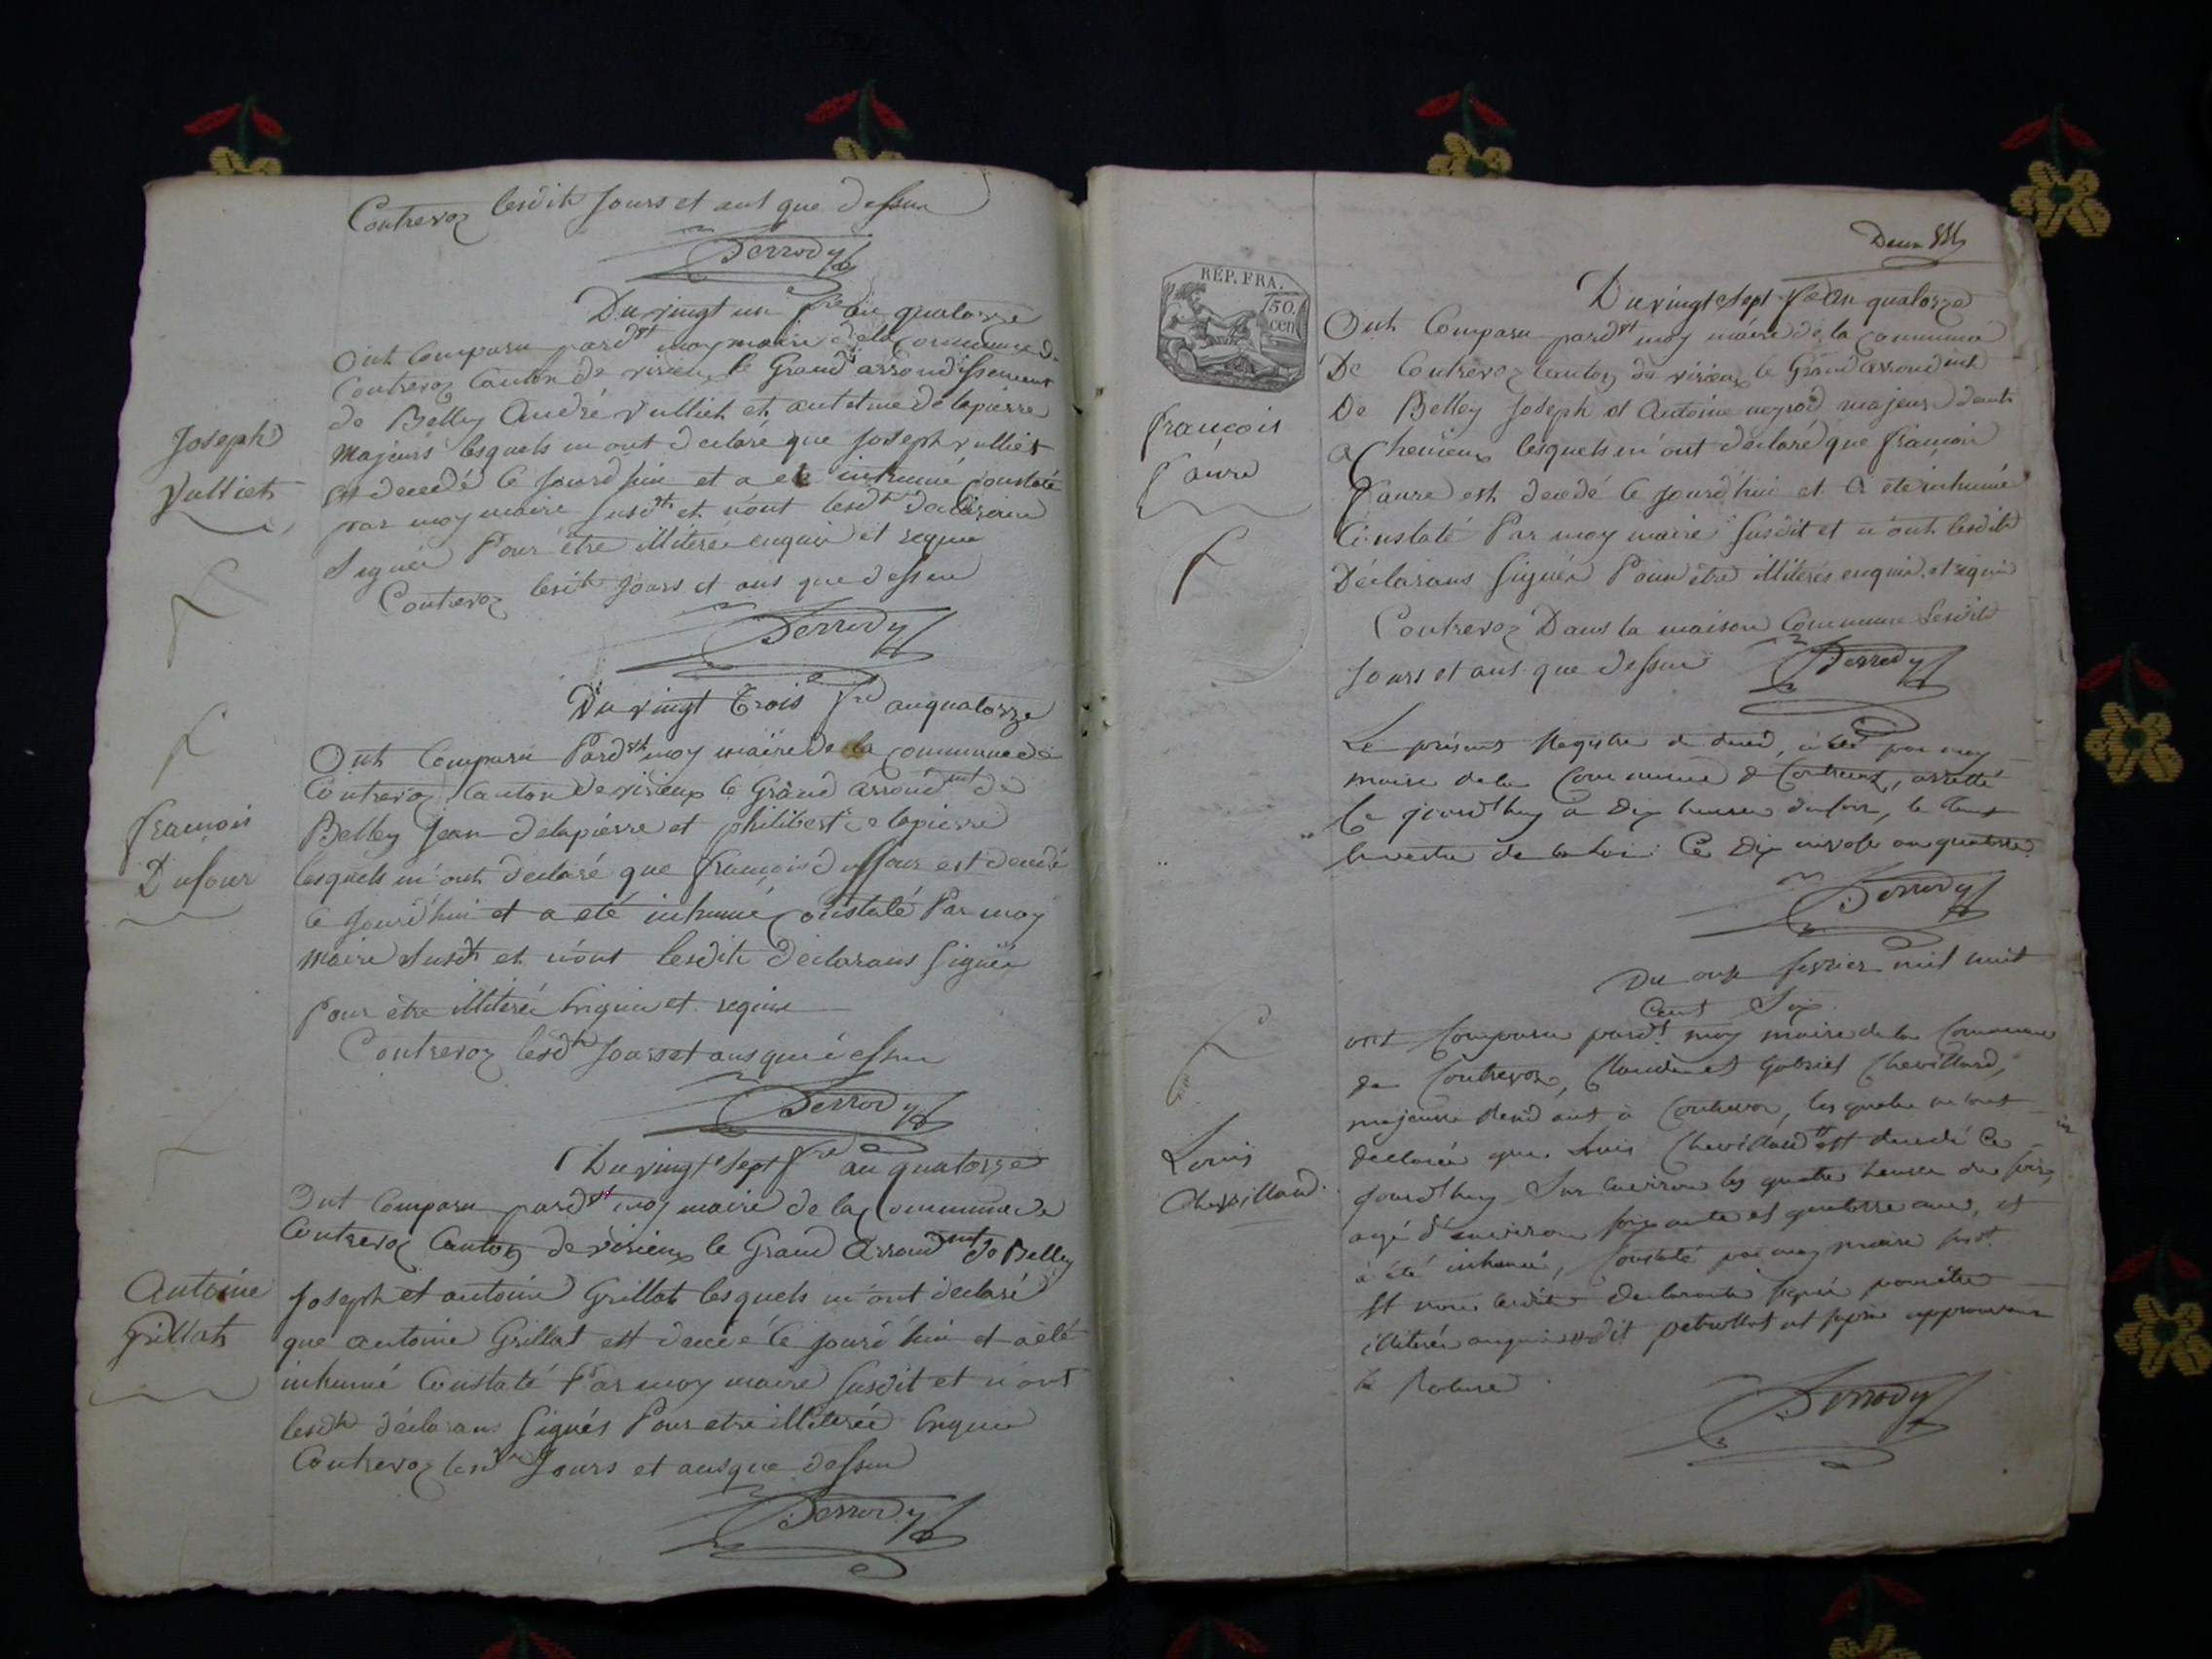 Contrevoz lesdits Jours et ans que dessus
Perrody
Du vingt un fre an quatorze
Joseph
Vulliet
Ont Comparu pardvt moy maire dela Commune de
Contrevoz Canton de virieux le Grand arrondissement
de Belley André vulliet et antelme delapierre
Majeurs lesquels m'ont declaré que Joseph vulliet
est decedé ce Jourdhui et a eté inhumé constaté
par moy maire susdt et n'ont lesdt declarans
Signés Pour être illiterés enquis et requis
Contrevoz lesdt Jours et ans que dessus
Perrody
Du vingt trois fre an quatorze
François
Dufour
Ont Comparu Pardvt moy maire de la commune de
Contrevoz Canton de virieux le Grand arrondmt de
Belley Jean delapierre et philibert delapierre
lesquels m'ont declaré que françois duffour est decedé
ce Jourd'hui et a eté inhumé Constaté Par moy
Maire Susdt et n'ont lesdits declarans Signés
Pour être illiterés Enquis et requis
Contrevoz lesdt Jours et ans que dessus
Perrody
Du vingt Sept fre an quatorze
Antoine
Grillat
Ont Comparu pardvt moy maire de la Commune de
Contrevoz Canton de virieux le Grand Arrondmt de Belley
Joseph et antoine Grillat lesquels m'ont declaré
que antoine Grillat est decedé ce jourd'hui et a été
inhumé Constaté Par moy maire susdit et n'ont
lesdts déclarans Signés Pour etre illiterés Enquis
Contrevoz lesdts Jours et ans que dessus
Perrody
Deux
RÉP. FRA.
50
cen
Du vingt Sept fre an quatorze
François
faure
Ont Comparu pardvt moy maire de la commune
De Contrevoz Canton de virieux le Grand arrondmt
De Belley Joseph et Antoine neyrod majeurs demts
a Cheilieux lesquels m'ont declaré que françois
faure est decedé ce jourd'hui et a eté inhumé
Constaté Par moy maire Susdit et n'ont lesdits
Déclarans Signés Pour être illiterés enquis et requis
Contrevoz Dans la maison Commune Lesdits
Jours et ans que dessus Perrody
Le présent Registre de deces, a été par moy
maire de la Commune de Contrevoz, arretté
ce jourdhuy a Dix heures du soir, le tout
de la Loi Ce Dix nivose an quatorze
Perrody
Du onze fevrier mil huit
Cent Six
Louis
Chevilland
ont Comparu pardt moy maire de la Commune
de Contrevoz, Claude et Gabriel Chevilland,
majeurs demeurant à Contrevoz, les quels m'ont
declaré que Louis Chevilland est decedé ce
jourdhuy Sur environ les quatre heures du soir,
agé d'environ soixante et quatorze ans, et
a été inhumé, Constaté par moy maire susdt
Et n'ont lesdits declarants signé pour être
illiterés enquis et requis approuvant
la rature
Perrody